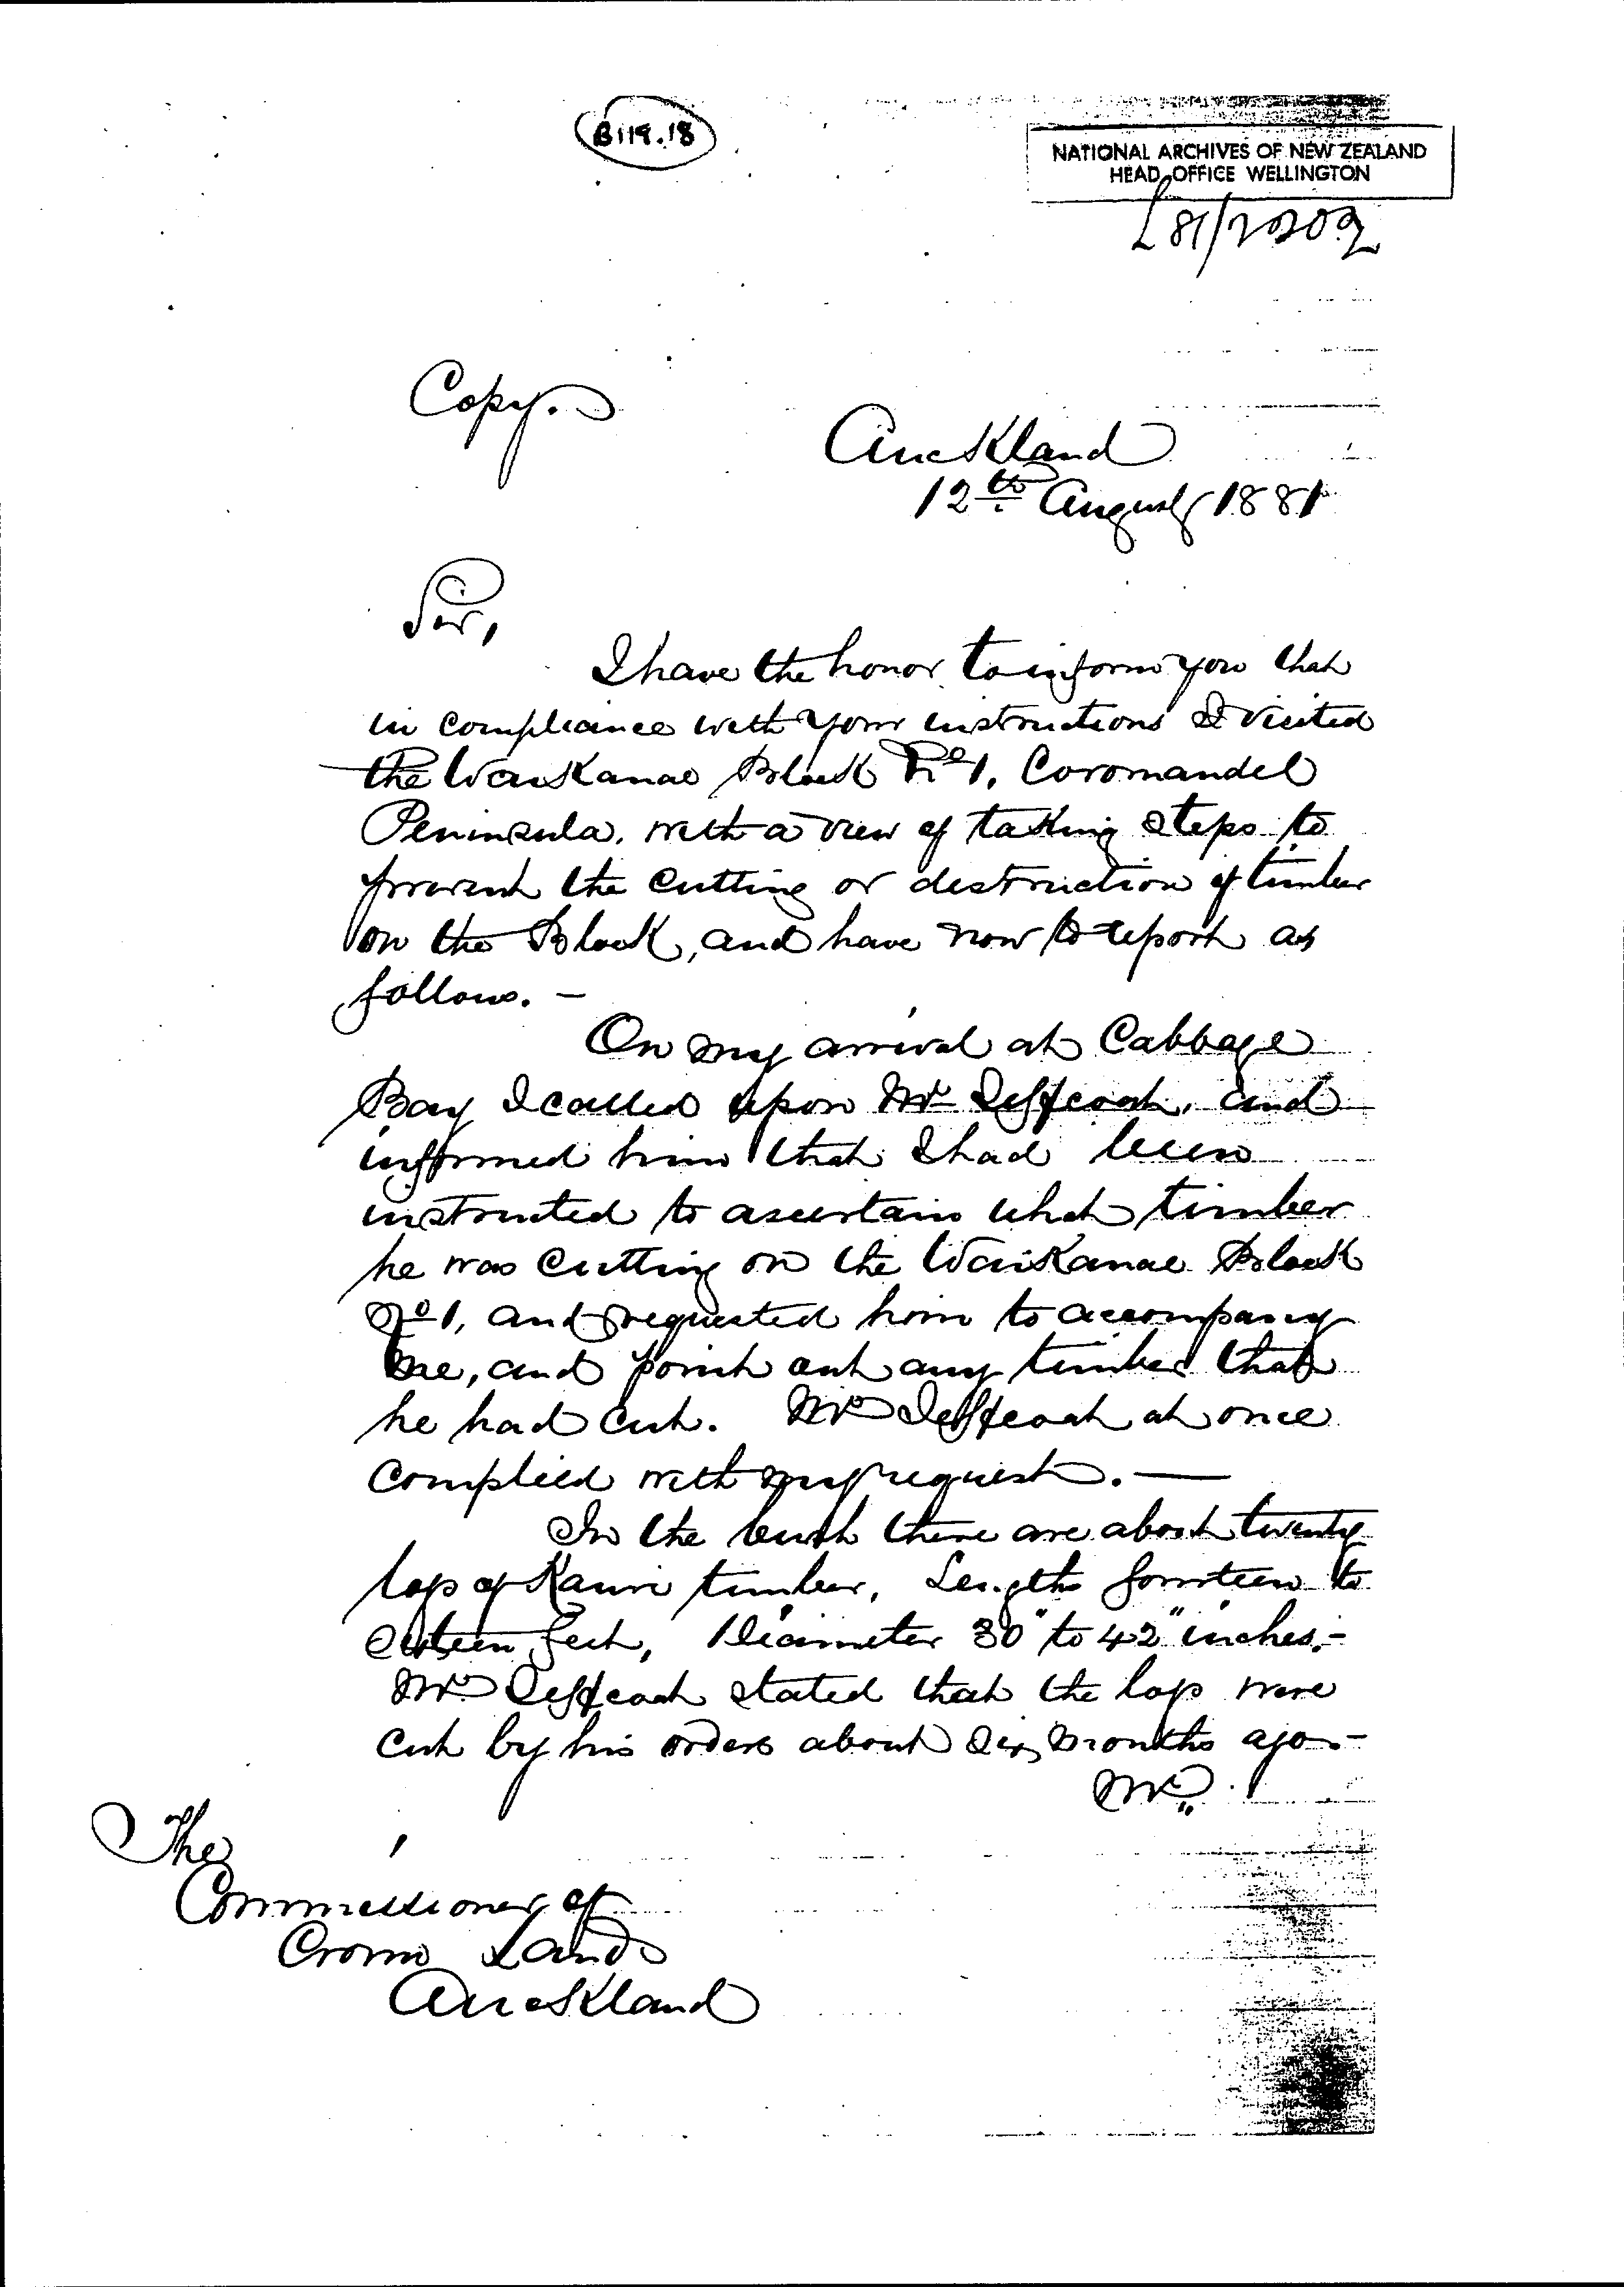 B119.18
NATIONAL ARCHIVES OF NEW ZEALAND
HEAD OFFICE WELLINGTON
Copy.
Auckland
12th August 1881
Sir,
I have the honor to inform you that
in compliance with your instructions I visited
the Waikanae Block No 1, Coromandel
Peninsula, with a view of taking steps to
prevent the cutting or destruction of timber
on the Block, and have now to report as
follows. –
On my arrival at Cabbage
Bay I called upon Mr Jeffcoat, and
informed him that I had been
instructed to ascertain what timber
he was cutting on the Waikanae Block
No 1, and requested him to accompany
me, and point out any timber that
he had cut. Mr Jeffcoat at once
complied with my request. —
In the bush there are about twenty
logs of Kauri timber, Lengths fourteen to
sixteen feet, Diameter 30" to 42" inches. –
Mr Jeffcoat stated that the logs were
cut by his orders about six months ago –
Mr
The
Commissioner of
Crown Lands
Auckland